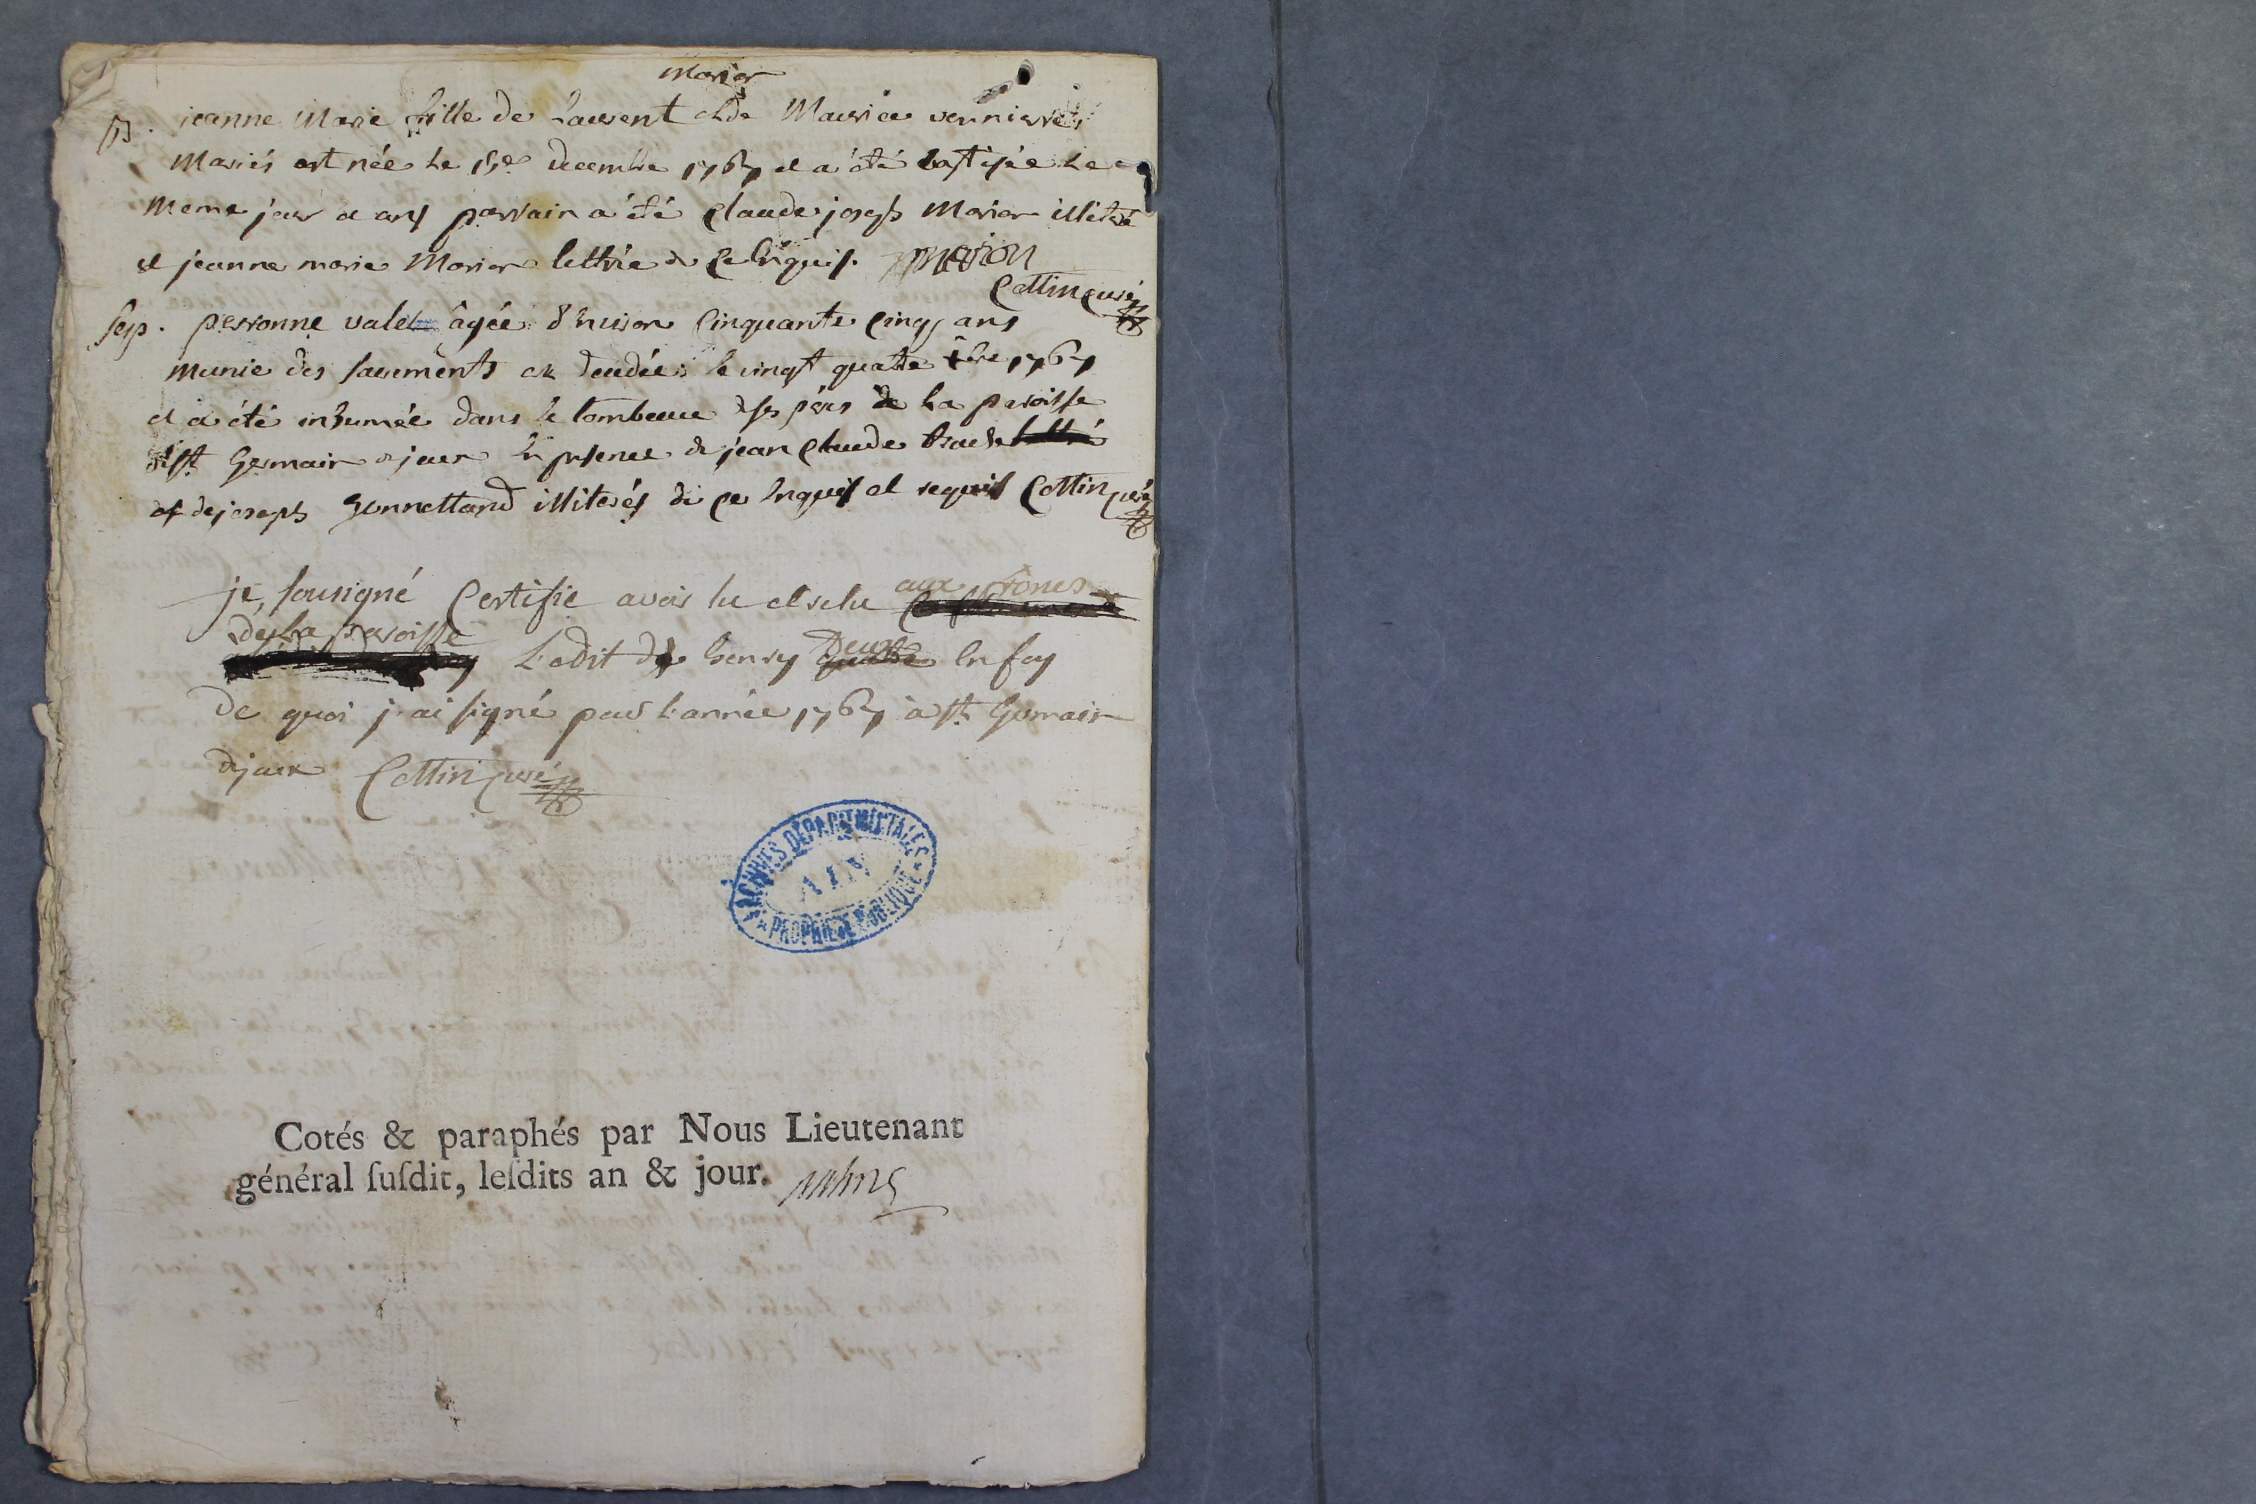 Marion
B. jeanne Marie fille de Laurent et de Mauricee vernierre
Mariés est née le 15e decembre 1767 et a été batisée le
meme jour et an parrain a été claude joseph Marion illiteré
et jeanne marie Marion lettrée de ce enquis. Marion
Cottin curé
sep. perronne valet âgée d'environ cinquante cinq ans
munie des sacrements est decedée le vingt quatre xbre 1767
et a été inhumée dans le tombeau de ses péres de la paroisse
de st Germain de joux en presence de jean claude
et de joseph Gonnettand illiterés de ce enquis et requis Cottin curé
je sousigné certifie avoir lu et relu aux prones
de la paroisse
L'edit de henry Deux en foy
de quoi j'ai signé pour l'année 1767 à st Germain
de joux Cottin curé
ARCHIVES DÉPARTEMENTALES
AIN
PROPRIÉTÉ PUBLIQUE
Cotés & paraphés par Nous Lieutenant
général susdit, lesdits an & jour.